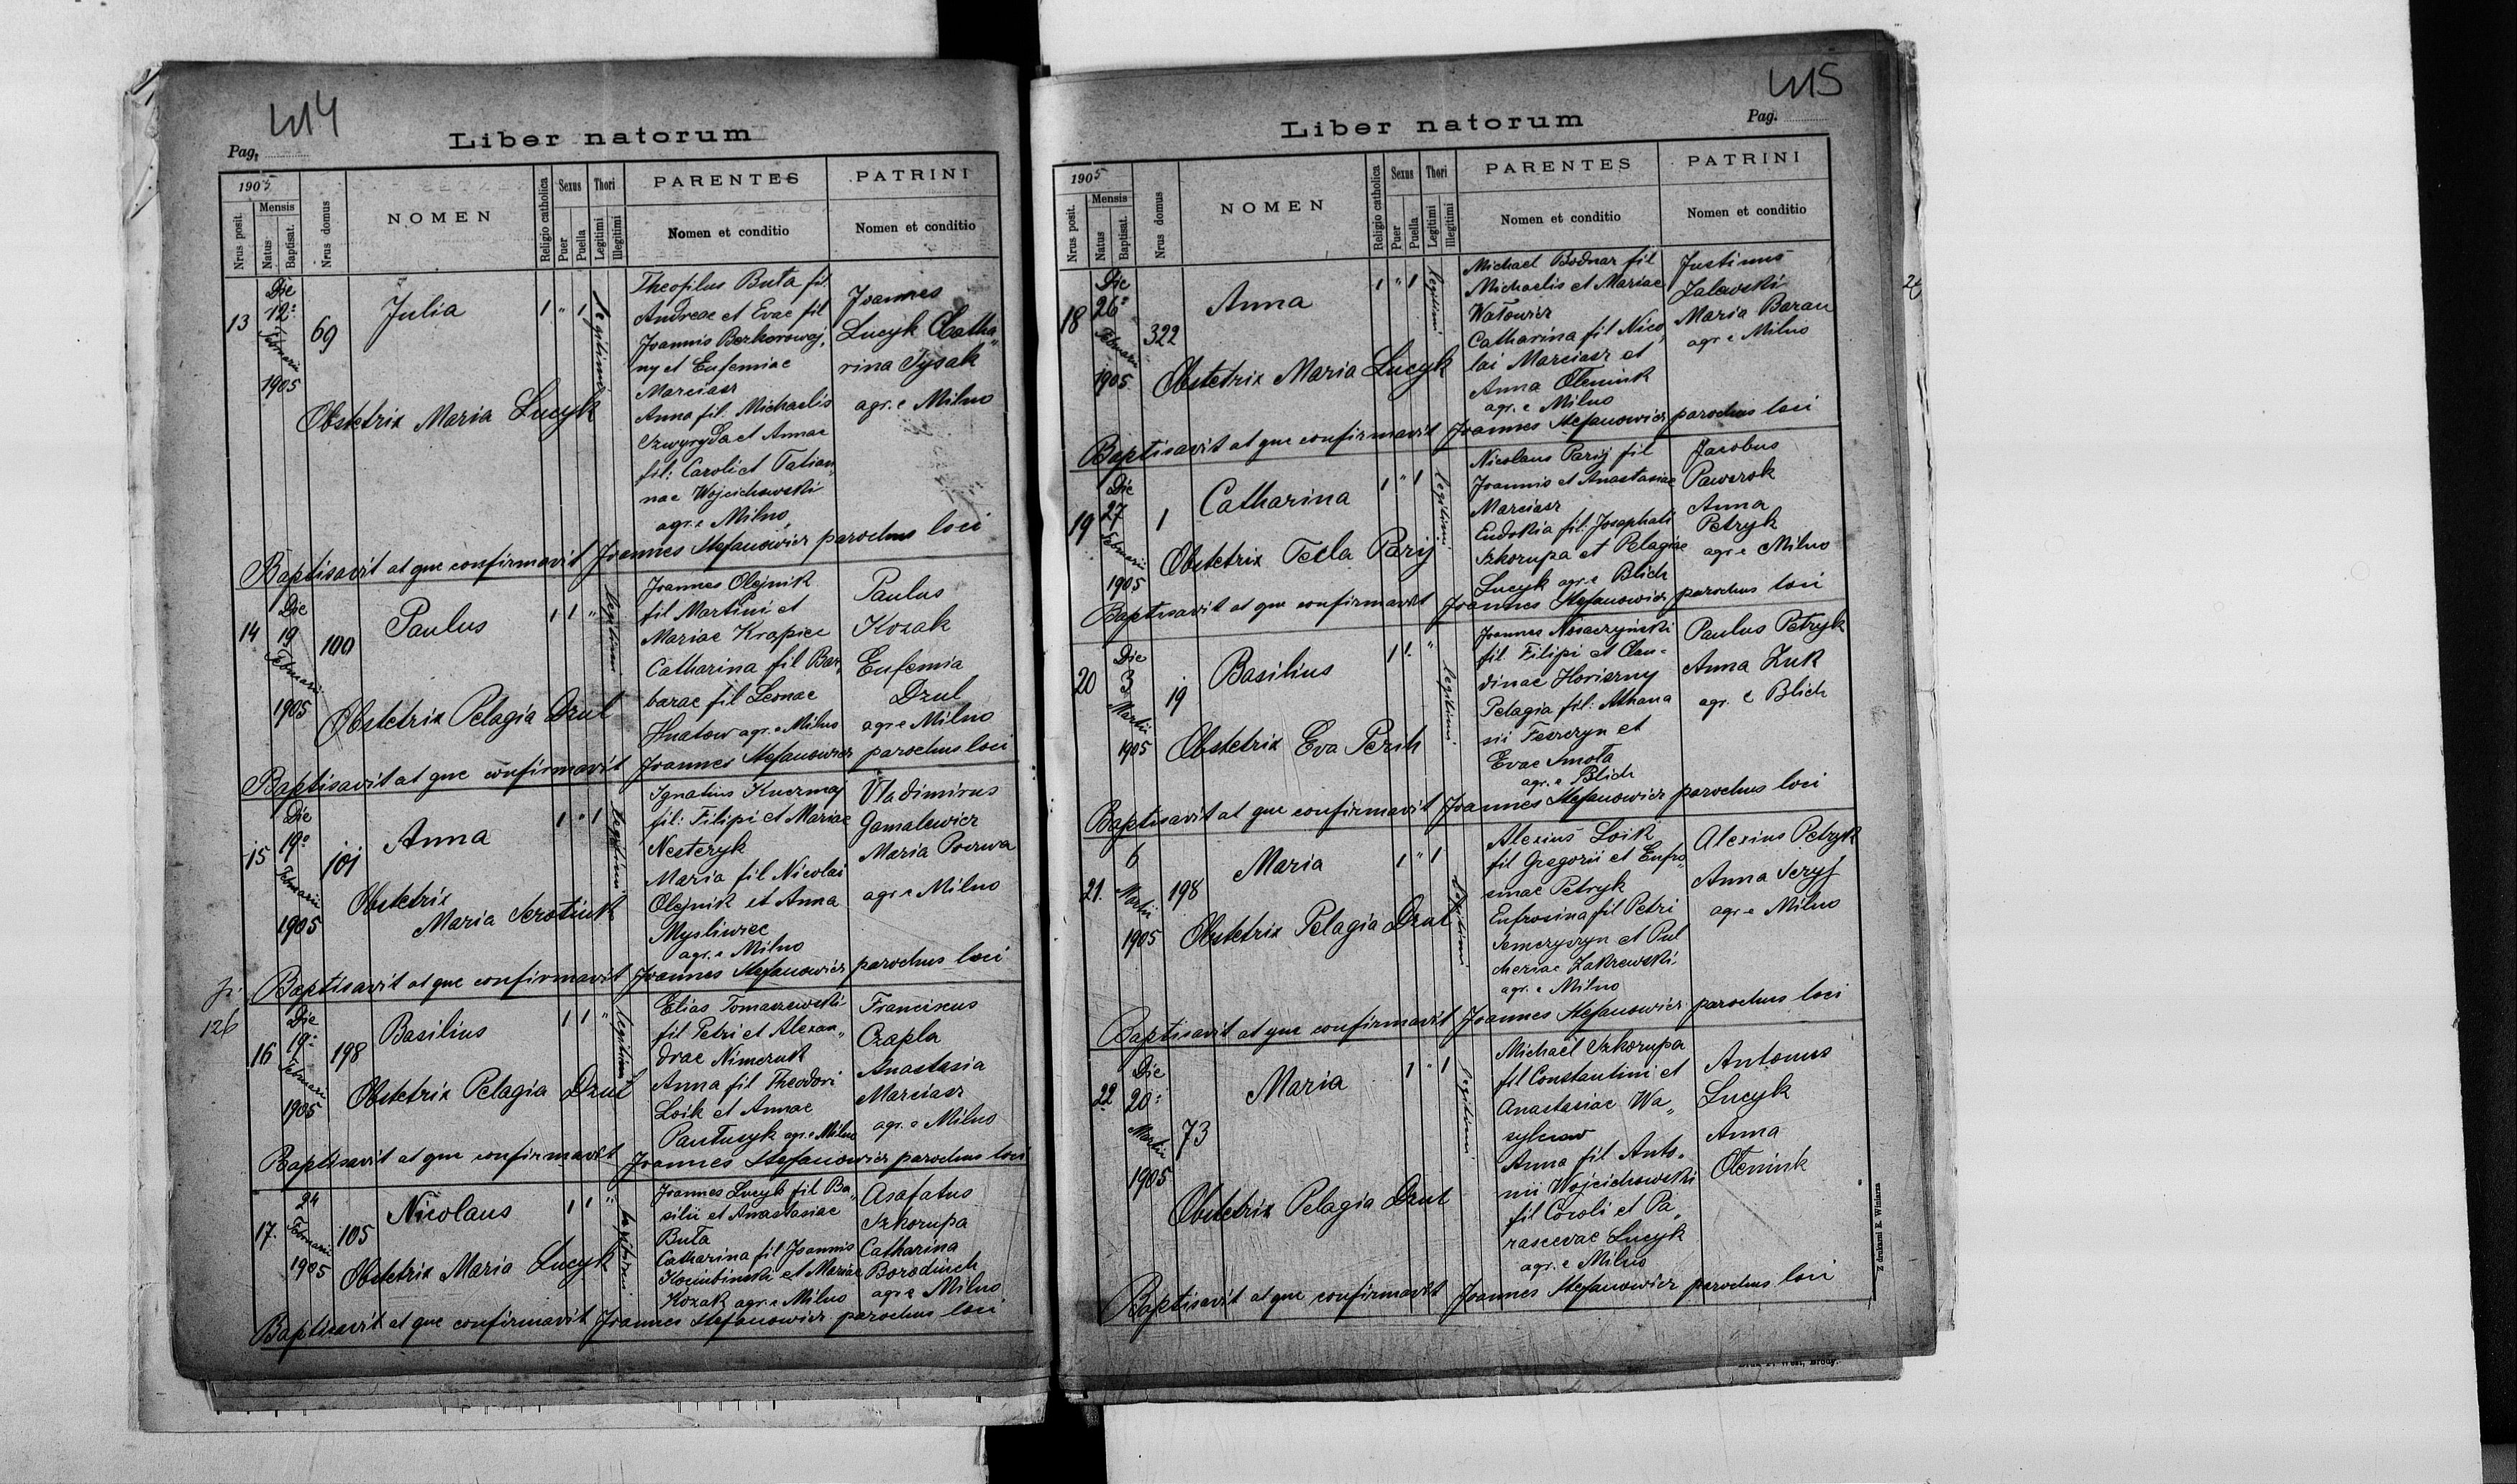 414
Pag.
Liber natorum
1905
Nrus posit.
Mensis
Natus
Baptisat.
Nrus domus
NOMEN
Religio catholica
Sexus
Puer
Puella
Thori
Legitimi
Illegitimi
PARENTES
Nomen et conditio
PATRINI
Nomen et conditio
13
Die
12
Februarii
1905
69
Julia
1 " 1
legitimi
Obstetrix Maria Lucyk
Theofilus Buta fil.
Andreae et Evae fil
Joannis Berkorowaj,
ny et Eufemiae
Marciasz
Anna fil. Michaelis
Czwyryda et Annae
fil: Caroli et Tatian,
nae Wojcichowski
agr. e Milno
Joannes
Lucyk Catha,
rina Tysak
agr. e Milno
Baptisavit atque confirmavit Joannes Stefanowicz parochus loci
14
Die
19
Februarii
1905
100
Paulus
1 1 "
legitimi
Obstetrix Pelagia Dzul
Joannes Olejnik
fil Martini et
Mariae Krapiec
Catharina fil Bar,
barae fil Leonae
Hnatow agr. e Milno
Paulus
Kozak
Eufemia
Dzul
agr e Milno
Baptisavit atque confirmavit Joannes Stefanowicz parochus loci
15
Die
19
Februarii
1905
101
Anna
1 " 1
legitimi
Obstetrix
Maria Serotiuk
Ignatius Kuczmaj
fil: Filipi et Mariae
Nesteryk
Maria fil Nicolai
Olejnik et Anna
Mysliwiec
agr. e Milno
Vladimirus
Gamalewicz
Maria Poczwa
agr e Milno
Baptisavit atque confirmavit Joannes Stefanowicz parochus loci
126
16
Die
19
Februarii
1905
198
Basilius
1 1 "
legitimi
Obstetrix Pelagia Dzul
Elias Tomaszewski
fil Petri et Alexan,
drae Nimczuk
Anna fil Theodori
Loik et Annae
Pantusyk agr. e Milno
Franciscus
Czapla
Anastasia
Marciasz
agr. e Milno
Baptisavit atque confirmavit Joannes Stefanowicz parochus loci
17.
24
Februarii
1905
105
Nicolaus
1 1 "
legitimi
Obstetrix Maria Lucyk
Joannes Lucyk fil Ba,
silii et Anastasiae
Buta
Catharina fil Joannis
et Mariae
Kozak agr. e Milno
Asafatus
Szkorupa
Catharina
Borodiuch
agr e Milno
Baptisavit atque confirmavit Joannes Stefanowicz parochus loci
415
Liber natorum
Pag.
1905
Nrus posit.
Mensis
Natus
Baptisat.
Nrus domus
NOMEN
Religio catholica
Sexus
Puer
Puella
Thori
Legitimi
Illegitimi
PARENTES
Nomen et conditio
PATRINI
Nomen et conditio
18
Die
26
Februarii
1905
322
Anna
1 " 1
legitimi
Obstetrix Maria Lucyk
Michael Bodnar fil
Michaelis et Mariae
Watowicz
Catharina fil Nico,
lai Marciasz et
Anna Oleniuk
agr. e Milno
Justinus
Zalewski
Maria Baran
agr e Milno
Baptisavit atque confirmavit Joannes Stefanowicz parochus loci
19
Die
27
Februarii
1905
1
Catharina
1 " 1
legitimi
Obstetrix Tecla Parij
Nicolaus Parij fil
Joannis et Anastasiae
Marciasz
Eudokia fil: Josaphati
Szkorupa et Pelagiae
Lucyk agr. e Blich
Jacobus
Pawczok
Anna
Petryk
agr e Milno
Baptisavit atque confirmavit Joannes Stefanowicz parochus loci
20
Die
3
Martii
1905
19
Basilius
1 1 "
legitimi
Obstetrix Eva Perih
Joannes Nosaczyński
fil Filipi et Clau-
dinae Horiszny
Pelagia fil: Athana
sii Feszczyn et
Evae Smota
agr. e Blich
Paulus Petryk
Anna Zuk
agr. e Blich
Baptisavit atque confirmavit Joannes Stefanowicz parochus loci
21.
6
Martii
1905
198
Maria
1 " 1
legitimi
Obstetrix Pelagia Dzul
Alexius Loik
fil Gregorii et Eufro,
sinae Petryk
Eufrosina fil Petri
Semczyszyn et Pul
cheriae Zakrewski
agr. e Milno
Alexius Petryk
Anna Seryf
agr e Milno
Baptisavit atque confirmavit Joannes Stefanowicz parochus loci
22
Die
20
Martii
1905
73
Maria
1 " 1
legitimi
Obstetrix Pelagia Dzul
Michael Szkorupa
fil Constantini et
Anastasiae Wa,,
sylciow
Anna fil Anto,
nii Wojcichowski
fil Coroli et Pa,,
rascevae Lucyk
agr. e Milno
Antonus
Lucyk
Anna
Oleniuk
Baptisavit atque confirmavit Joannes Stefanowicz parochus loci
Z drukarni R. Wintera